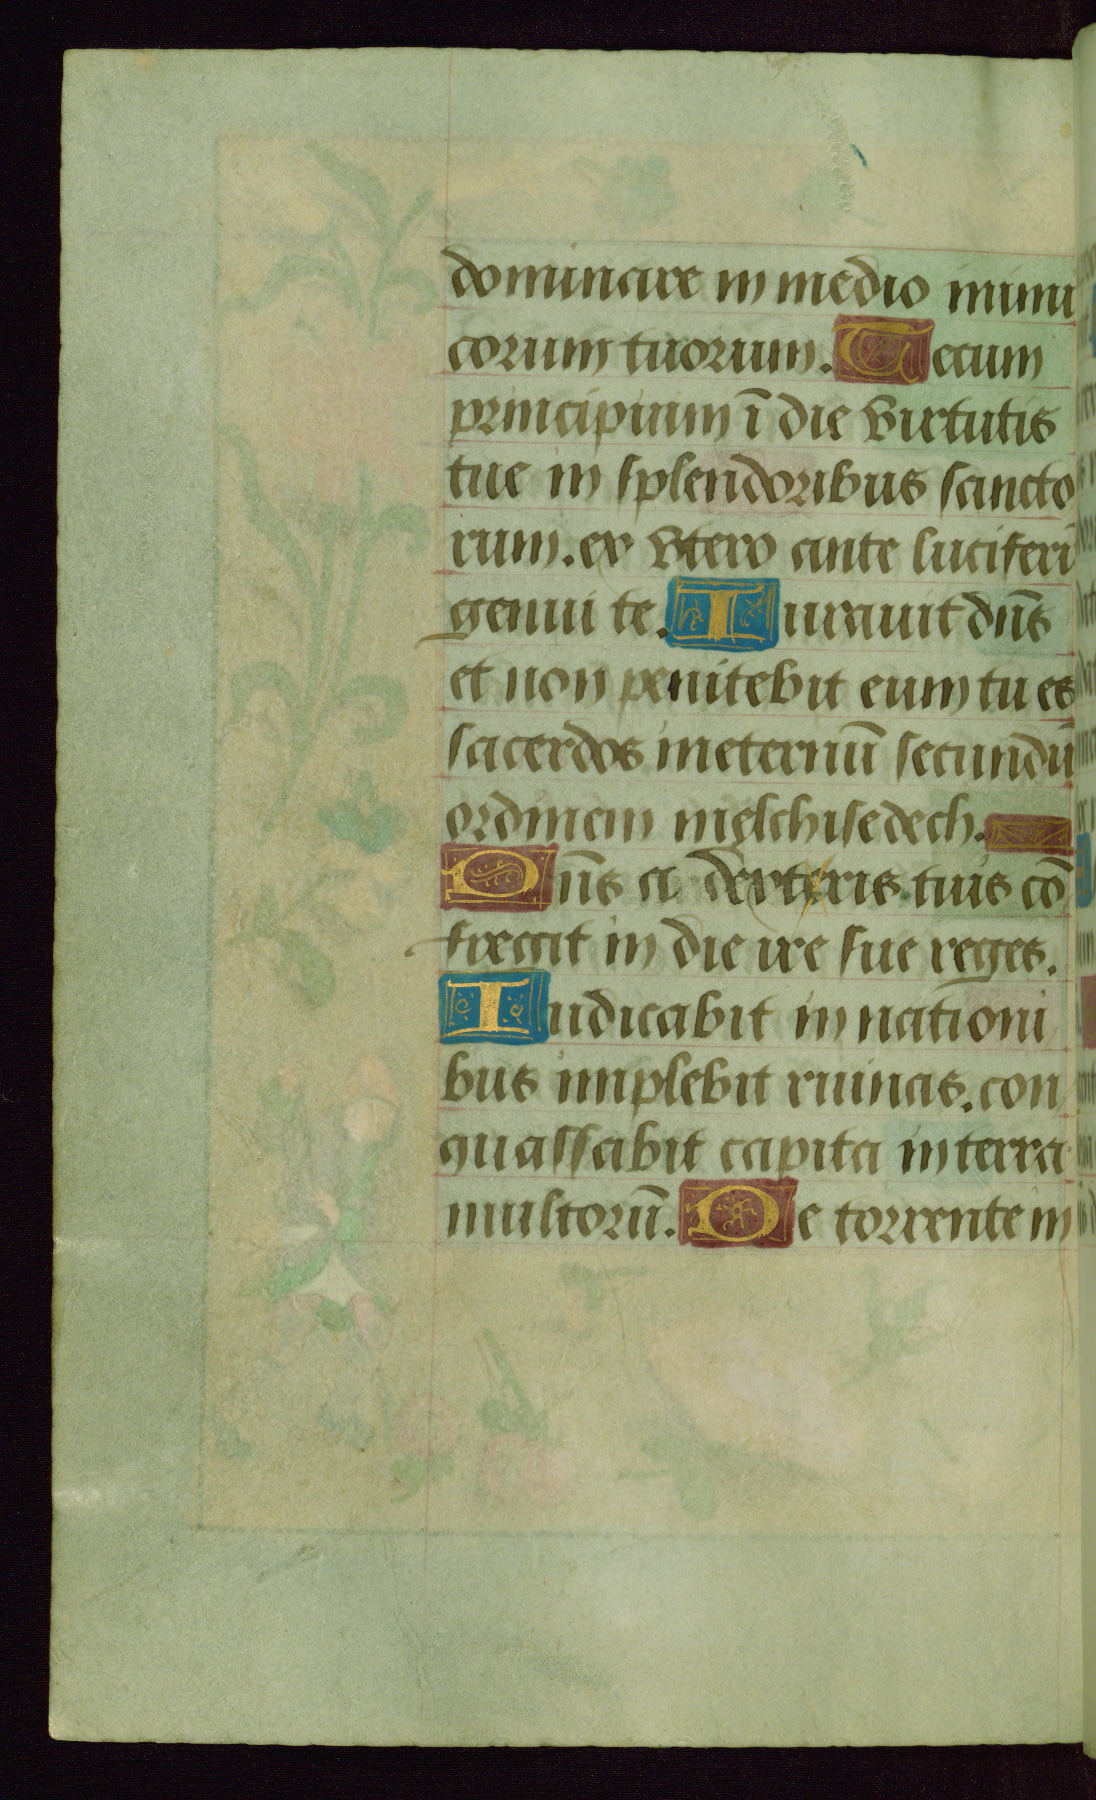 dominare in medio inimi
corum tuorum. Tecum
principium ī die virtutis
tue in splendoribus sancto
rum. ex vtero ante luciferū
genui te. Iurauit dn̄s
et non penitebit eum tu es
sacerdos in eternū secundū
ordinem melchisedech.
Dn̄s a dextris tuis cō
fregit in die ire sue reges.
Iudicabit in nationi
bus implebit ruinas. con
quassabit capita in terra
multorū. De torrente in